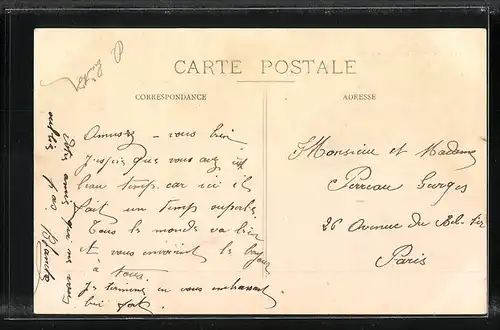 CARTE POSTALE
CORRESPONDANCE
ADRESSE
Amusez-vous bien
J'espère que vous avez
beau temps car ici il
fait un temps superbe.
Tous le monde va bien
et vous envoient le bonjour
à tous.
Je termine en vous embrassant
bien fort.
Votre amie qui ne vous
oublie pas
Monsieur et Madame
Perreau Georges
26 Avenue du
Paris